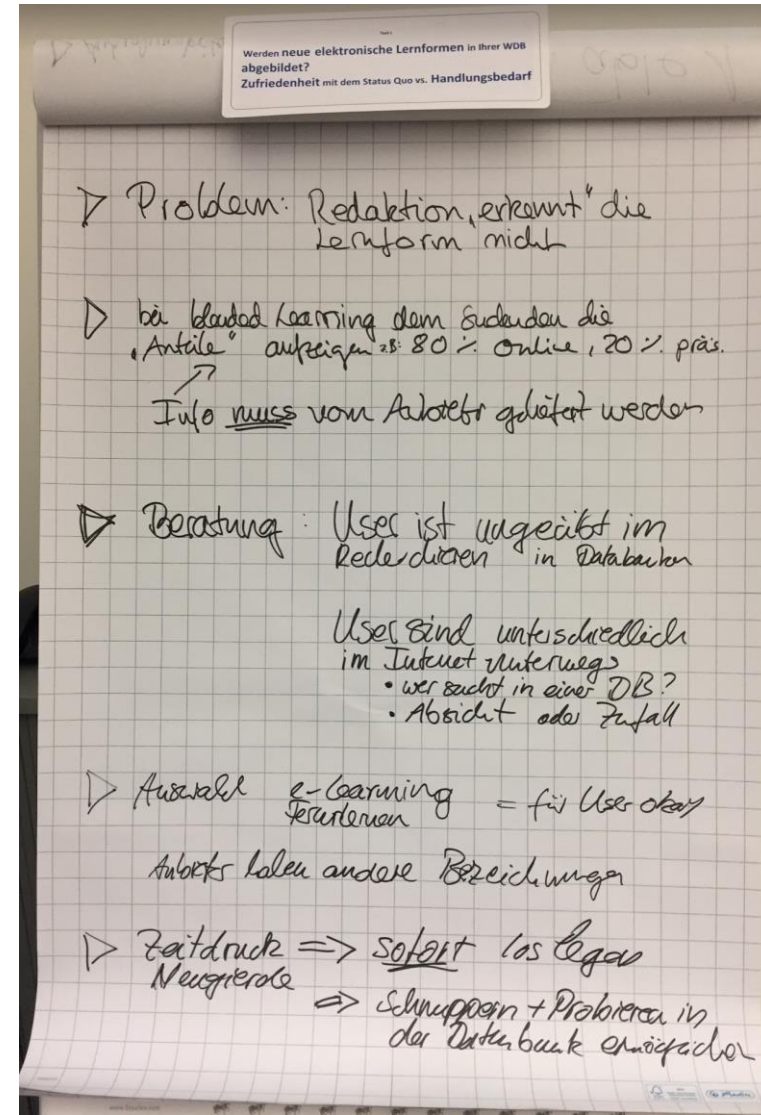 Werden neue elektronische Lernformen in Ihrer WDB
abgebildet?
Zufriedenheit mit dem Status Quo vs. Handlungsbedarf
Problem: Redaktion „erkennt" die
Lernform nicht
bei blended Learning dem Suchenden die
„Anteile" aufzeigen z.B: 80 % Online, 20 % präs.
Info muss vom Anbieter geliefert werden
Beratung: User ist ungeübt im
Recherchieren in Databanken
User sind unterschiedlich
im Internet unterwegs
• wer sucht in einer DB?
• Absicht oder Zufall
Auswahl e-Learning = für User okay
Fernlernen
Anbieter haben andere Bezeichnungen
Zeitdruck => sofort los legen
Neugierde
=> Schnuppern + Probieren in
der Datenbank ermöglichen